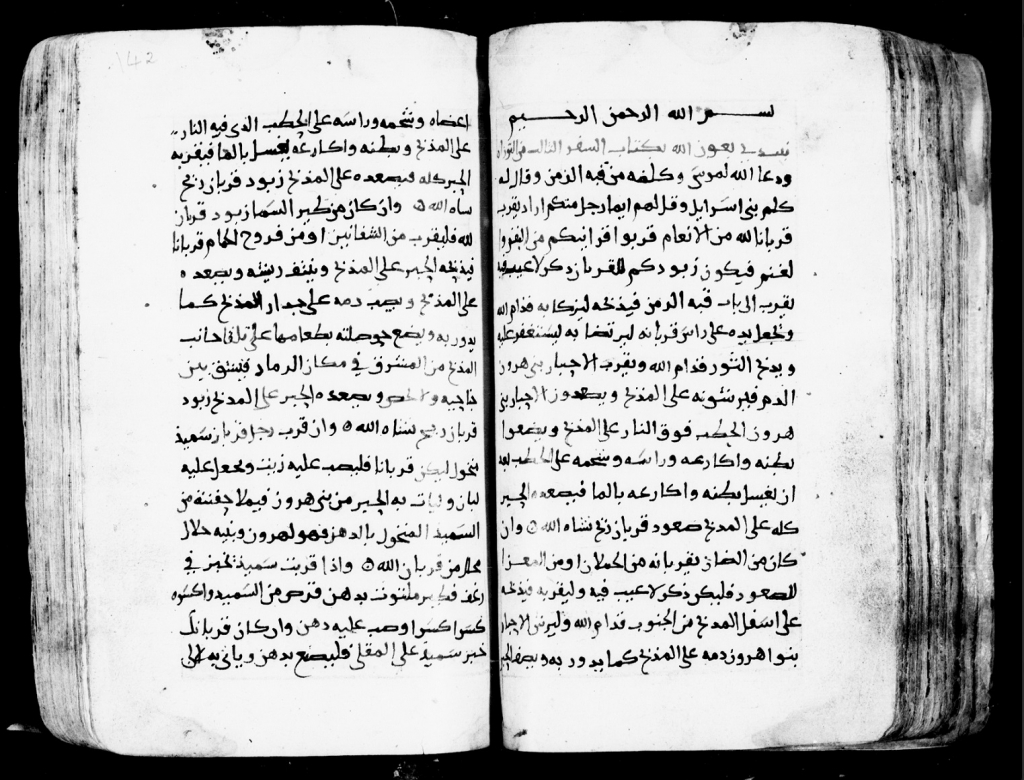 بسم الله الرحمن الرحيم
نبتدي بعون الله بكتاب السفر الثالث من التوراه
ودعا الله لموسى وكلمه من قبه الزمن وقال له
كلم بنى اسرايل وقل لهم ايما رجل منكم اراد يقرب
قربانا لله من الانعام قربوا قرابينكم من البقر وا
لغنم فيكون زبودكم للقربان ذكر لا عيب فيه
يقرب الى باب قبه الزمن فيذبحه ليزكا به قدام الله
وتجعل يده على راس قربانه ليرتضا به ليستغفر عليه
ويذبح الثور قدام الله ويقرب الاحبار بنى هرون
الدم فيرشونه على المذبح ويصعدون الاحبار بنى
هرون الحطب فوق النار على المذبح ويضعوا
بطنه واكارعه وراسه وشحمه على الحطب بعد
ان يغسل بطنه واكارعه بالما فيصعده الحبر
كله على المذبح صعود قربان ريح نشاه الله وان
كان من الضان بقربانه من الحملان او من المعزا
للصعود فليكن ذكر لا عيب فيه وليقربه فيذبحه
على اسفل المذبح من الجنوب قدام الله وليرش الاحبار
بنوا هرون دمه على المذبح كما يدور به ويصف الحبر
اعضاه وشحمه وراسه على الحطب الذى فيه النار
على المذبح وبطنه واكارعه يغسل بالما فيقربه
الحبر كله فيصعده على المذبح زبود قربان ريح
ساه الله وان كان من طير السما زبود قربان
لله فليقرب من الشفانين او من فروح الحمام قربانا
فيذبحه الحبر على المذبح وينتف ريشه ويصعده
على المذبح ويصب دمه على جدار المذبح كما
يدور به ويضع حوصلته بطعامها على تلقا جانب
المذبح من المشرق في مكان الرماد فيشق بين
جناحيه ولا يخص ويصعده الحبر على المذبح زبود
قربان ريح نشاه الله وان قرب رجل قربان سميذ
منخول ليكن قربانا فليصب عليه زيت ويجعل عليه
لبان وليات به الحبر من بنى هرون فيملا حفنته من
السميذ المنخول بالدهن فهو لهرون وبنيه حلال
محلل من قربان الله واذا قربت سميذ تخبز في
فطير ملتوت بدهن قرص من السميد واكسره
كسرا كسرا وصب عليه دهن وان كان قربانك
خبز سميذ على المقلى فليصع بدهن وياتى به الى